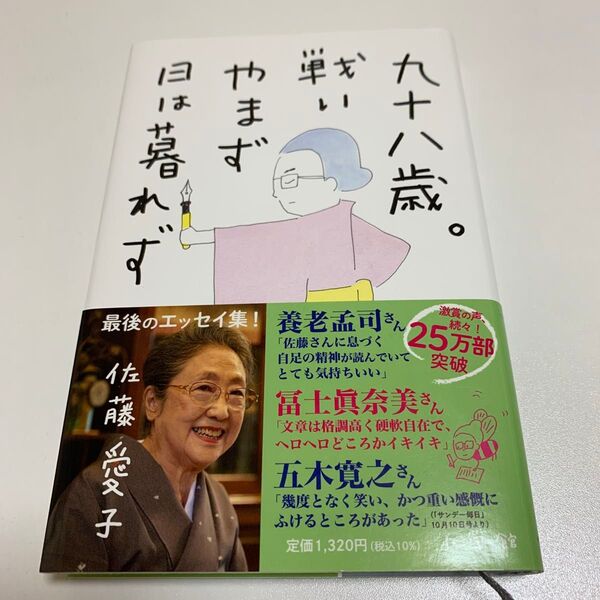 九十八歳。
戦い
やまず
日は暮れず
最後のエッセイ集！
佐藤愛子
養老孟司さん
「佐藤さんに息づく
自足の精神が読んでいて
とても気持ちいい」
激賞の声
続々！
25万部
突破
冨士眞奈美さん
「文章は格調高く硬軟自在で、
ヘロヘロどころかイキイキ」
五木寛之さん
「幾度となく笑い、かつ重い感慨に
ふけるところがあった」
（「サンデー毎日」
10月10日号より）
定価1,320円（税込10%）